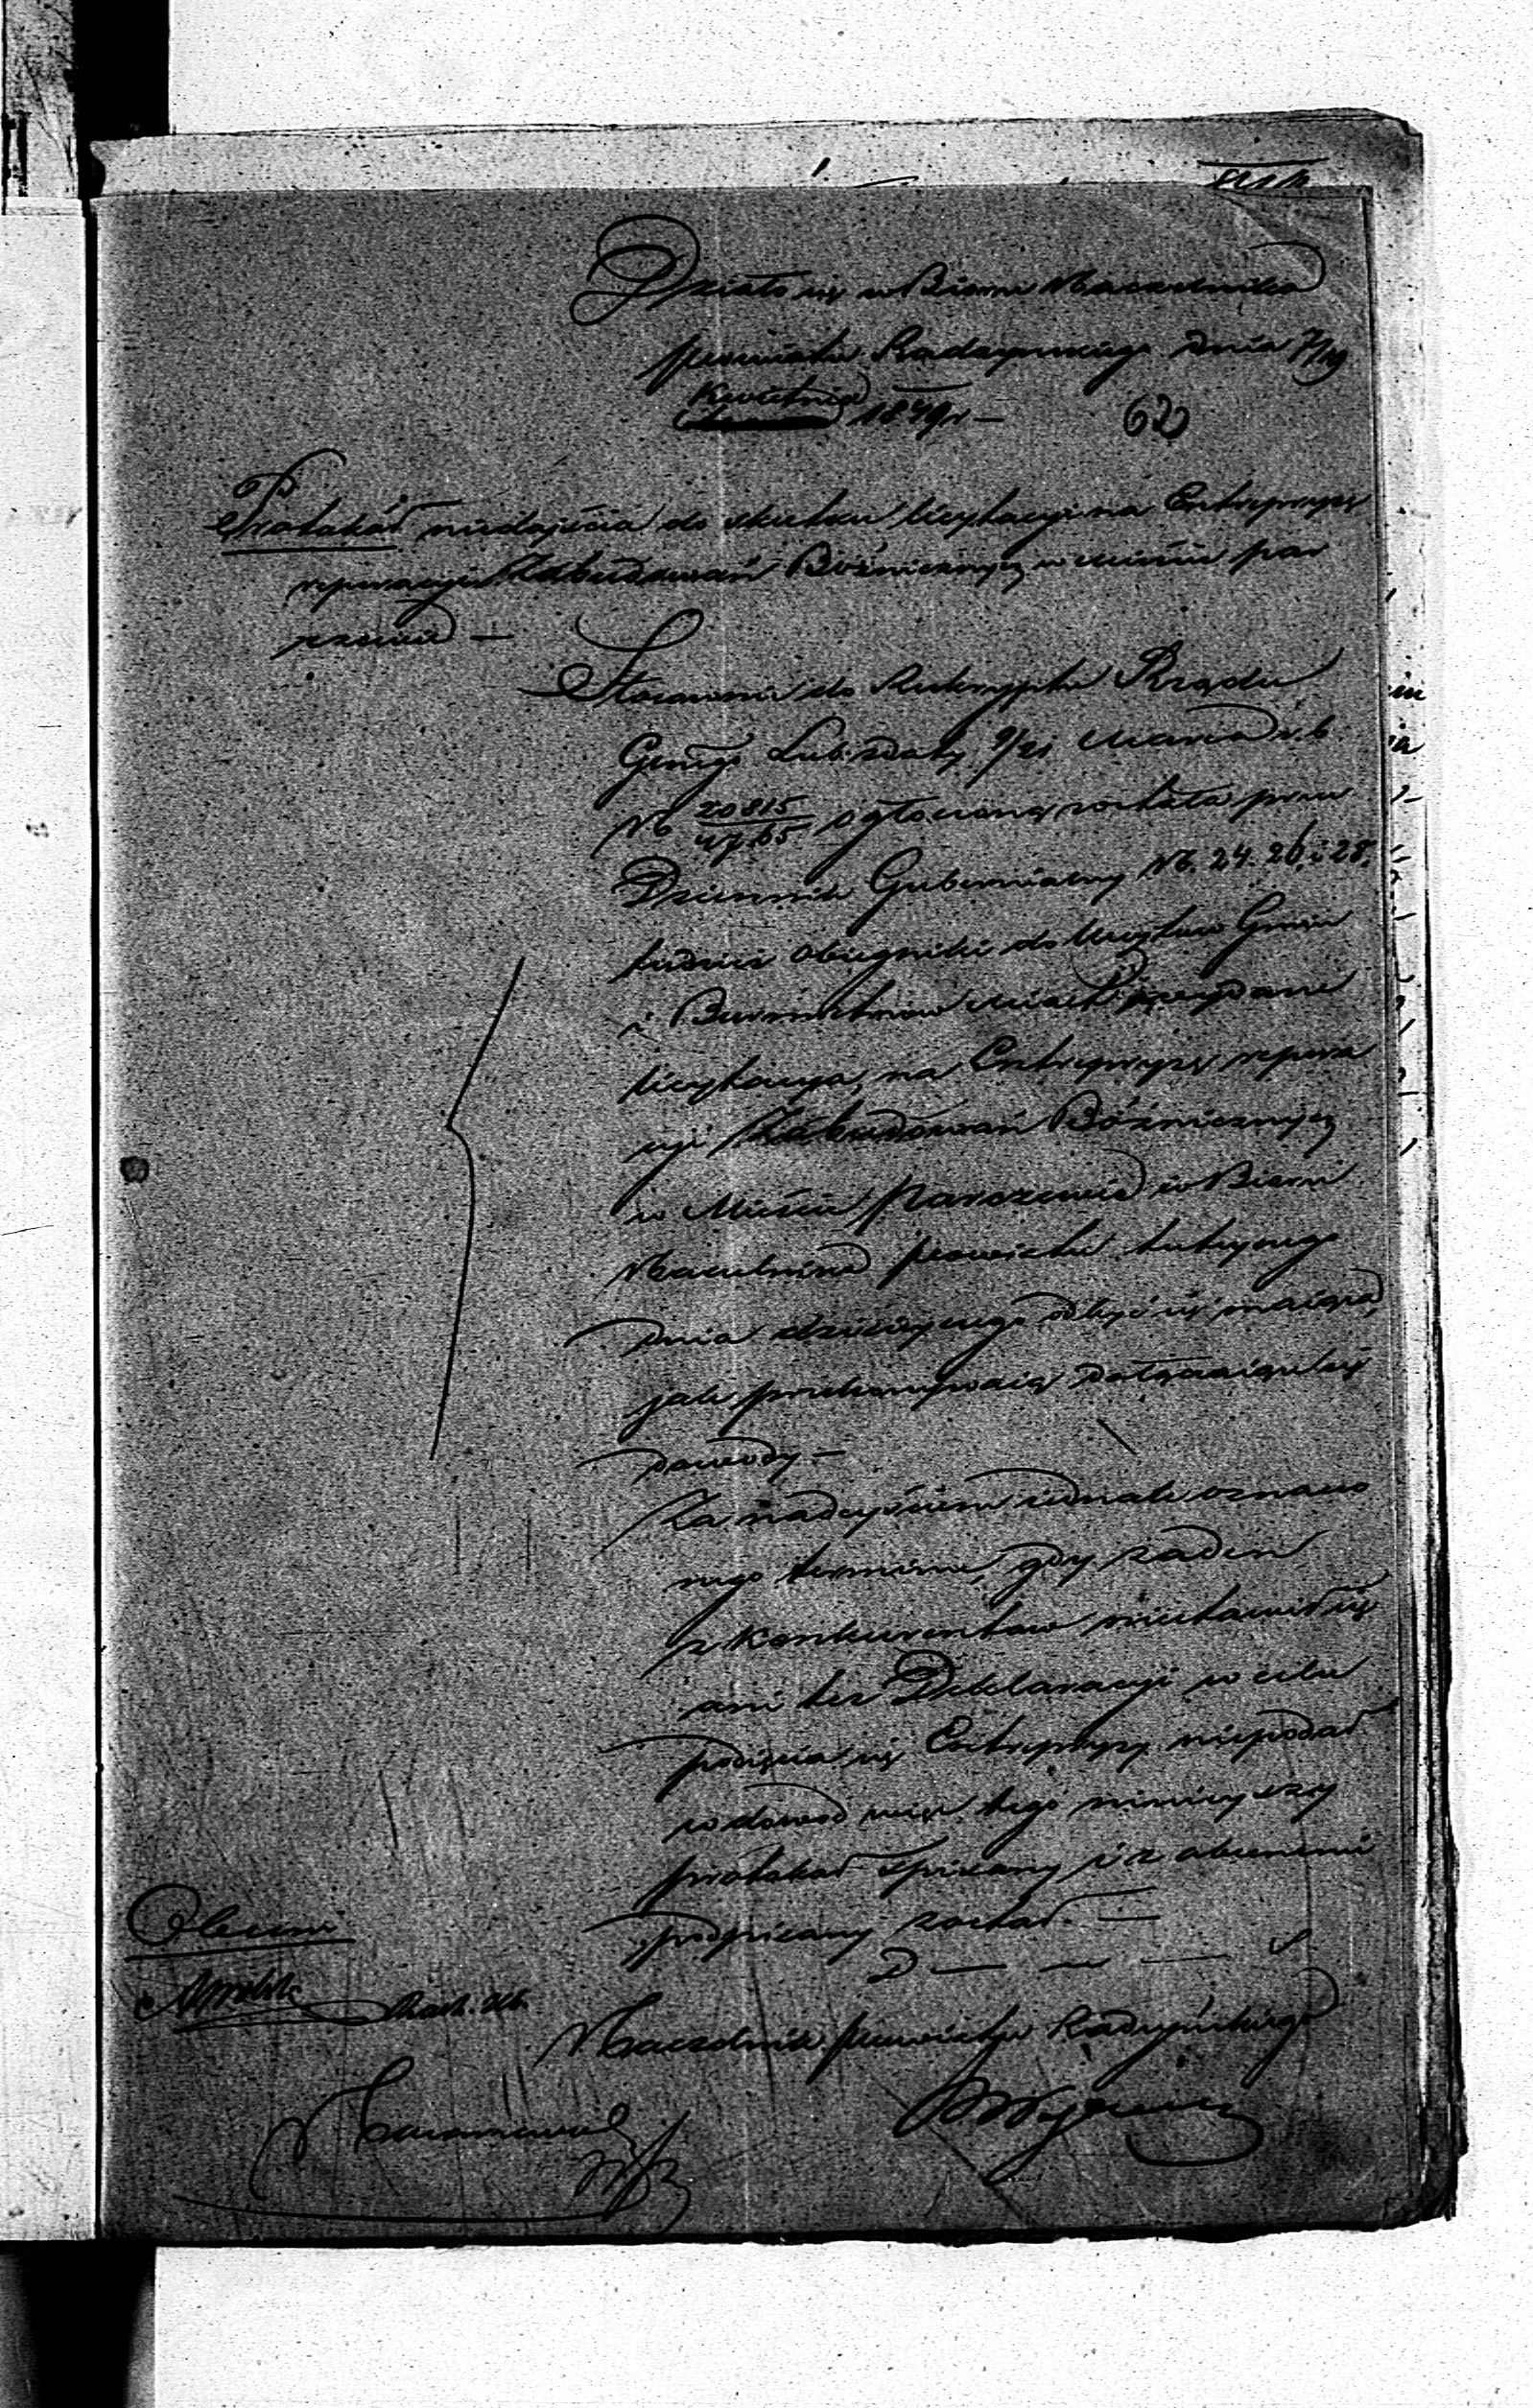 Działo się w Biórze Naczelnika
powiatu Radzyńskiego dnia 7/19
Kwietnia 1849 r —
62
Protokół niedojścia do skutku licytacyi na Entrepryzę
reperacyi Zabudowań Bóżnicznych w mieście Par
czewie —
Stosownie do Reskryptu Rządu
Gungo Lub. z daty 9/21 Marca r. b.
No 20815/4765 ogłoszoną została przez
Dziennik Gubernialny No. 24. 26 i 28.
tudzież obiegniki do Wójtów Gmin
i Burmistrzów Miast wydane
licytacya, na Entrepryzę repera
cyi Zabudowań Bóżniczych
w Mieście Parczewie w Biórze
Naczelnika powiatu tutejszego
dnia dzisiejszego odbyć się maiąca,
jak przekonywaią dołączaiące się
dowody —
Za nadejściem iednak oznaczo
nego terminu, gdy żaden
z Konkurentów niestawił się
ani też Deklaracyi w celu
podjęcia się Entrepryzy niepodał
w dowód więc tego niniejszy
protokół spisany i z obecnemi
podpisany został. —
D — w — s
Obecni
Naczelnik powiatu Radzyńskiego